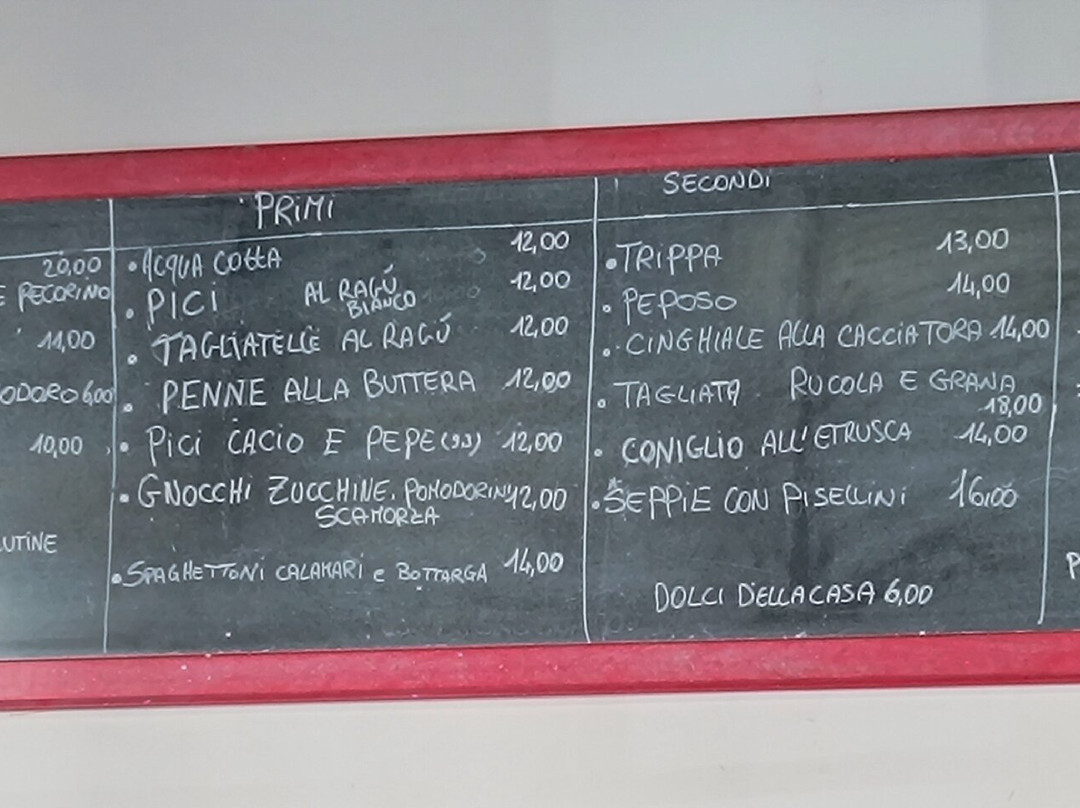 20,00
E PECORINO
11,00
ODORO 6,00
10,00
LUTINE
PRIMI
• ACQUA COTTA 12,00
• PICI AL RAGÚ 12,00
BIANCO
• TAGLIATELLE AL RAGÚ 12,00
• PENNE ALLA BUTTERA 12,00
• PICI CACIO E PEPE 12,00
• GNOCCHI ZUCCHINE, POMODORINI 12,00
SCAMORZA
• SPAGHETTONI CALAMARI e BOTTARGA 14,00
SECONDI
• TRIPPA 13,00
• PEPOSO 14,00
• CINGHIALE ALLA CACCIATORA 14,00
• TAGLIATA RUCOLA E GRANA
18,00
• CONIGLIO ALL'ETRUSCA 14,00
• SEPPIE CON PISELLINI 16,00
DOLCI DELLA CASA 6,00
P